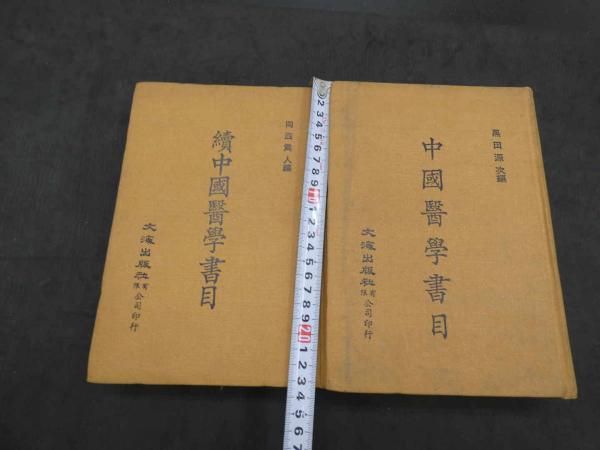 黑田源次編
中國醫學書目
文海出版社有限公司印行
岡西為人編
續中國醫學書目
文海出版社有限公司印行
2 3 4 5 6 7 8 9 10 1 2 3 4 5 6 7 8 9 20 1 2 3 4 5 6 7